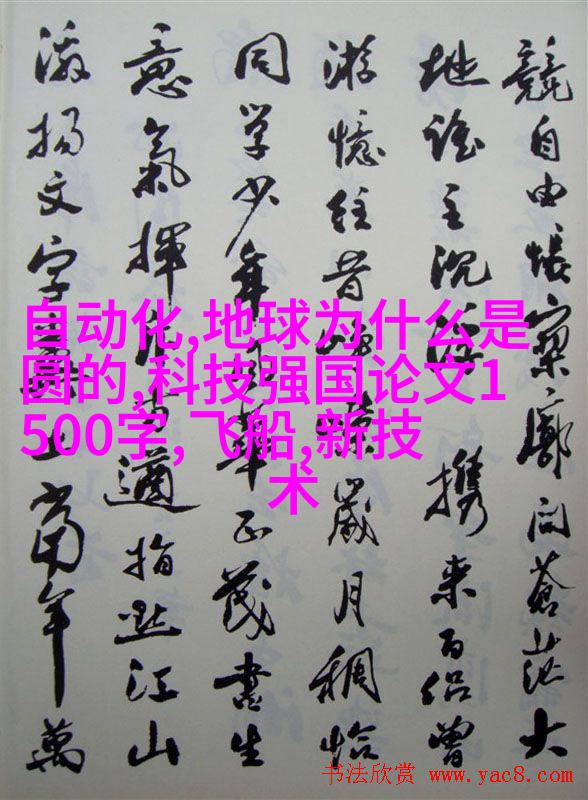 競自由悵寥廓问蒼茫大
地谁主沉浮 携来百侣曾
游憶往昔峥嵘歲月稠恰
同学少年風華正茂書生
意氣揮斥方遒指點江山
激揚文字糞土當年萬
自动化,地球为什么是
圆的,科技强国论文1
500字, 飞船,新技
术
书法欣赏 www.yac8.com